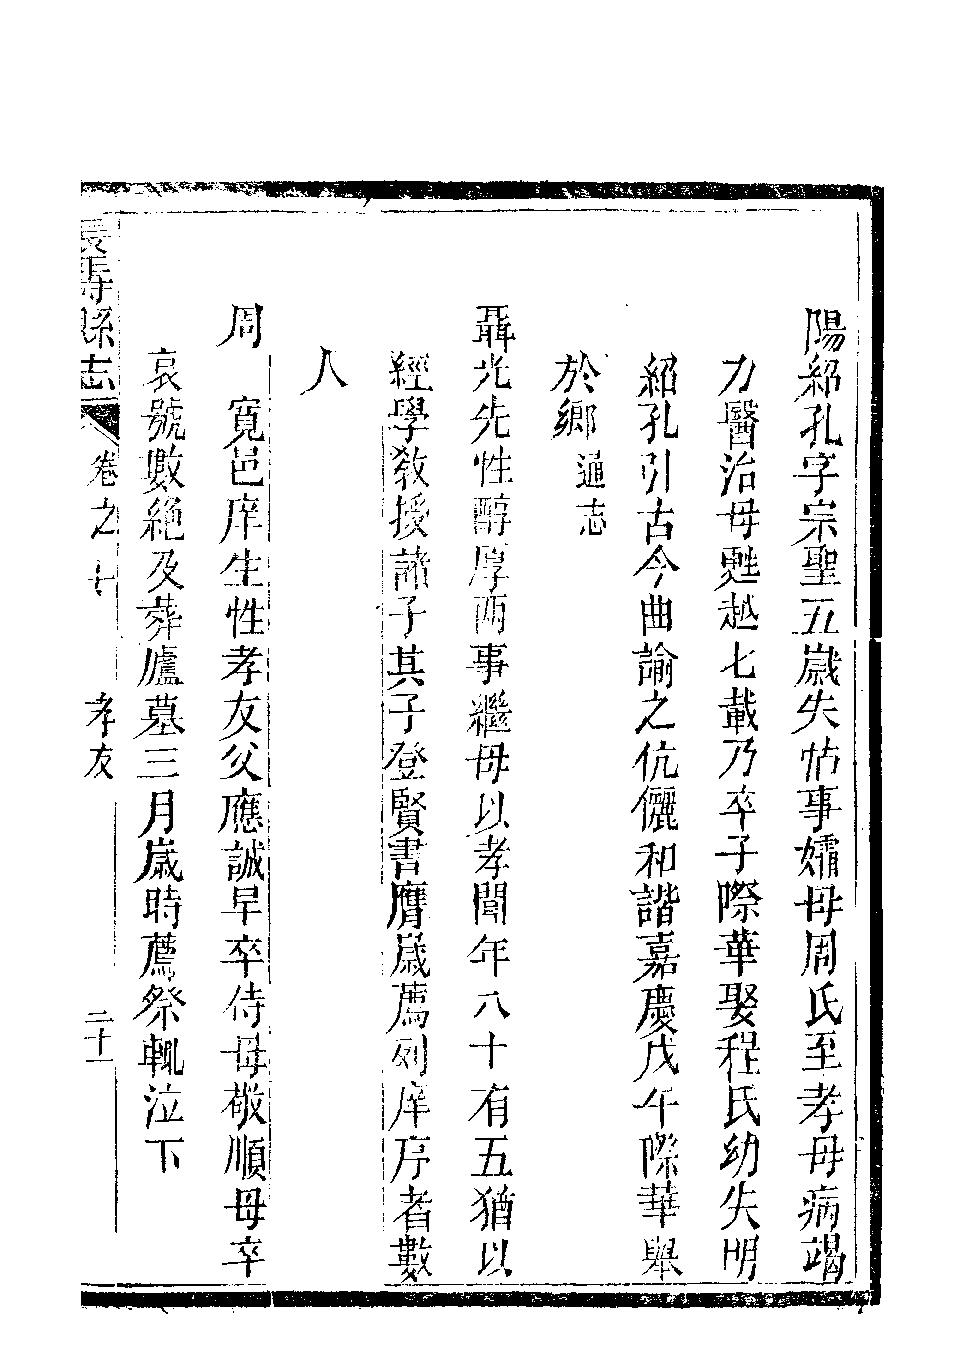 陽紹孔字宗聖五歲失怙事孀母周氏至孝母病竭
力醫治母甦越七載乃卒子際華娶程氏幼失明
紹孔引古今曲諭之伉儷和諧嘉慶戊午際華舉
於鄉通志
聶光先性醇厚兩事繼母以孝聞年八十有五猶以
經學教授諸子其子登賢書膺歲薦列庠序者數
人
周寬邑庠生性孝友父應誠早卒侍母敬順母卒
哀號數絕及葬廬墓三月歲時薦祭輒泣下
長壽縣志 卷之七 孝友 二十一